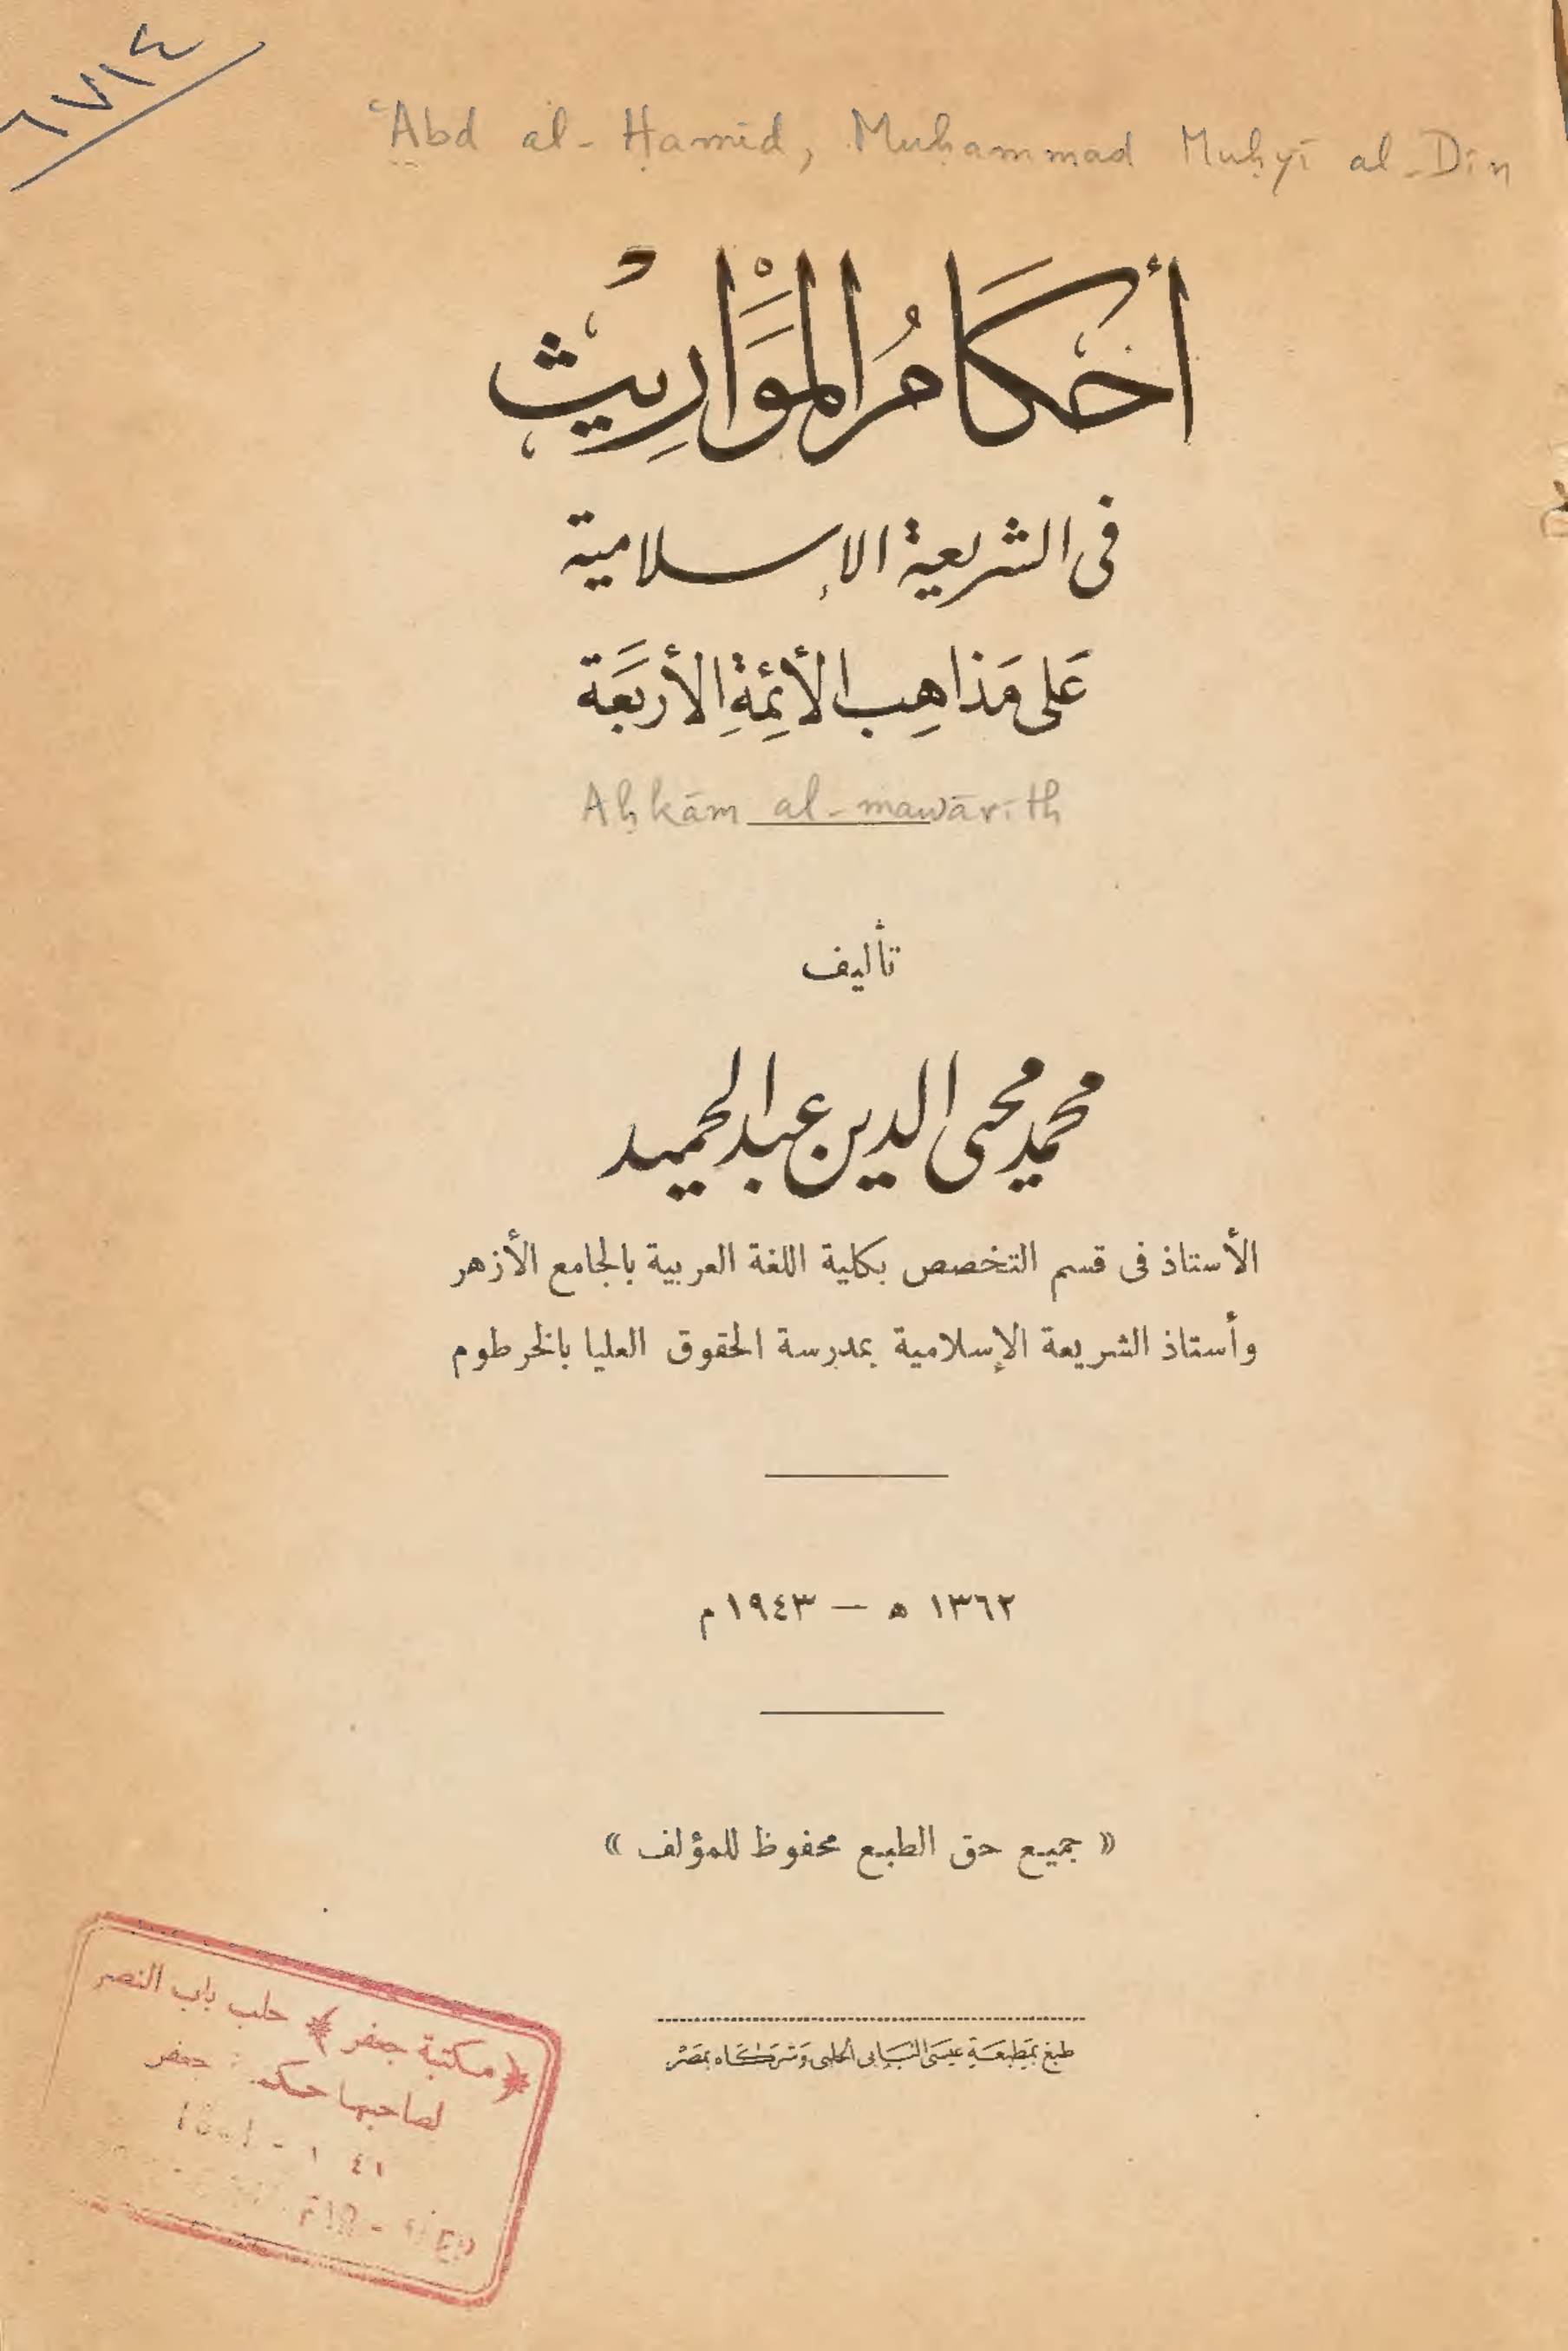 ٦٧١٤
ʿAbd al-Ḥamīd, Muḥammad Muḥyī al-Dīn
أَحْكَامُ الْمَوَارِيثِ
فى الشريعة الإسلامية
عَلى مَذاهِب الأئِمَّةِ الأربَعَة
Aḥkām al-mawārīth
تأليف
محمد محيى الدين عبد الحميد
الأستاذ فى قسم التخصص بكلية اللغة العربية بالجامع الأزهر
وأستاذ الشريعة الإسلامية بمدرسة الحقوق العليا بالخرطوم
١٣٦٢ هـ — ١٩٤٣ م
« جميع حق الطبع محفوظ للمؤلف »
طبع بمطبعة عيسى البابى الحلبى وشركاه بمصر
﴿ مكتبة جفر ﴾ حلب باب النصر
لصاحبها جفر